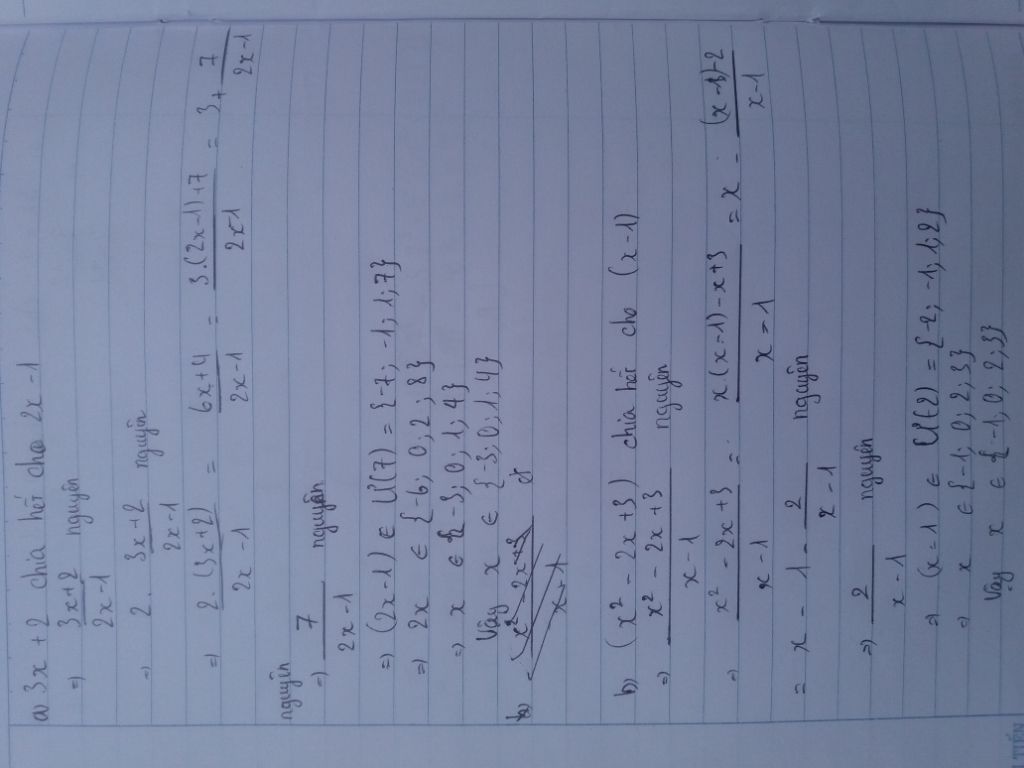 a) 3x + 2 chia hết cho 2x - 1
=) 3x+2 / 2x-1 nguyên
=) 2. 3x+2 / 2x-1 nguyên
=) 2.(3x+2) / 2x-1 = 6x+4 / 2x-1 = 3.(2x-1)+7 / 2x-1 = 3 + 7 / 2x-1
nguyên
=) 7 / 2x-1 nguyên
=) (2x-1) ∈ Ư(7) = {-7; -1; 1; 7}
=) 2x ∈ {-6; 0; 2; 8}
=) x ∈ {-3; 0; 1; 4}
Vậy x ∈ {-3; 0; 1; 4}
b) (x² - 2x + 3) chia hết cho (x-1)
=) x² - 2x + 3 / x-1 nguyên
=) x² - 2x + 3 / x-1 = x(x-1) - x+3 / x-1 = x - (x-1)-2 / x-1
= x - 1 - 2 / x-1 nguyên
=) 2 / x-1 nguyên
=) (x-1) ∈ Ư(2) = {-2; -1; 1; 2}
=) x ∈ {-1; 0; 2; 3}
Vậy x ∈ {-1; 0; 2; 3}
TIẾN